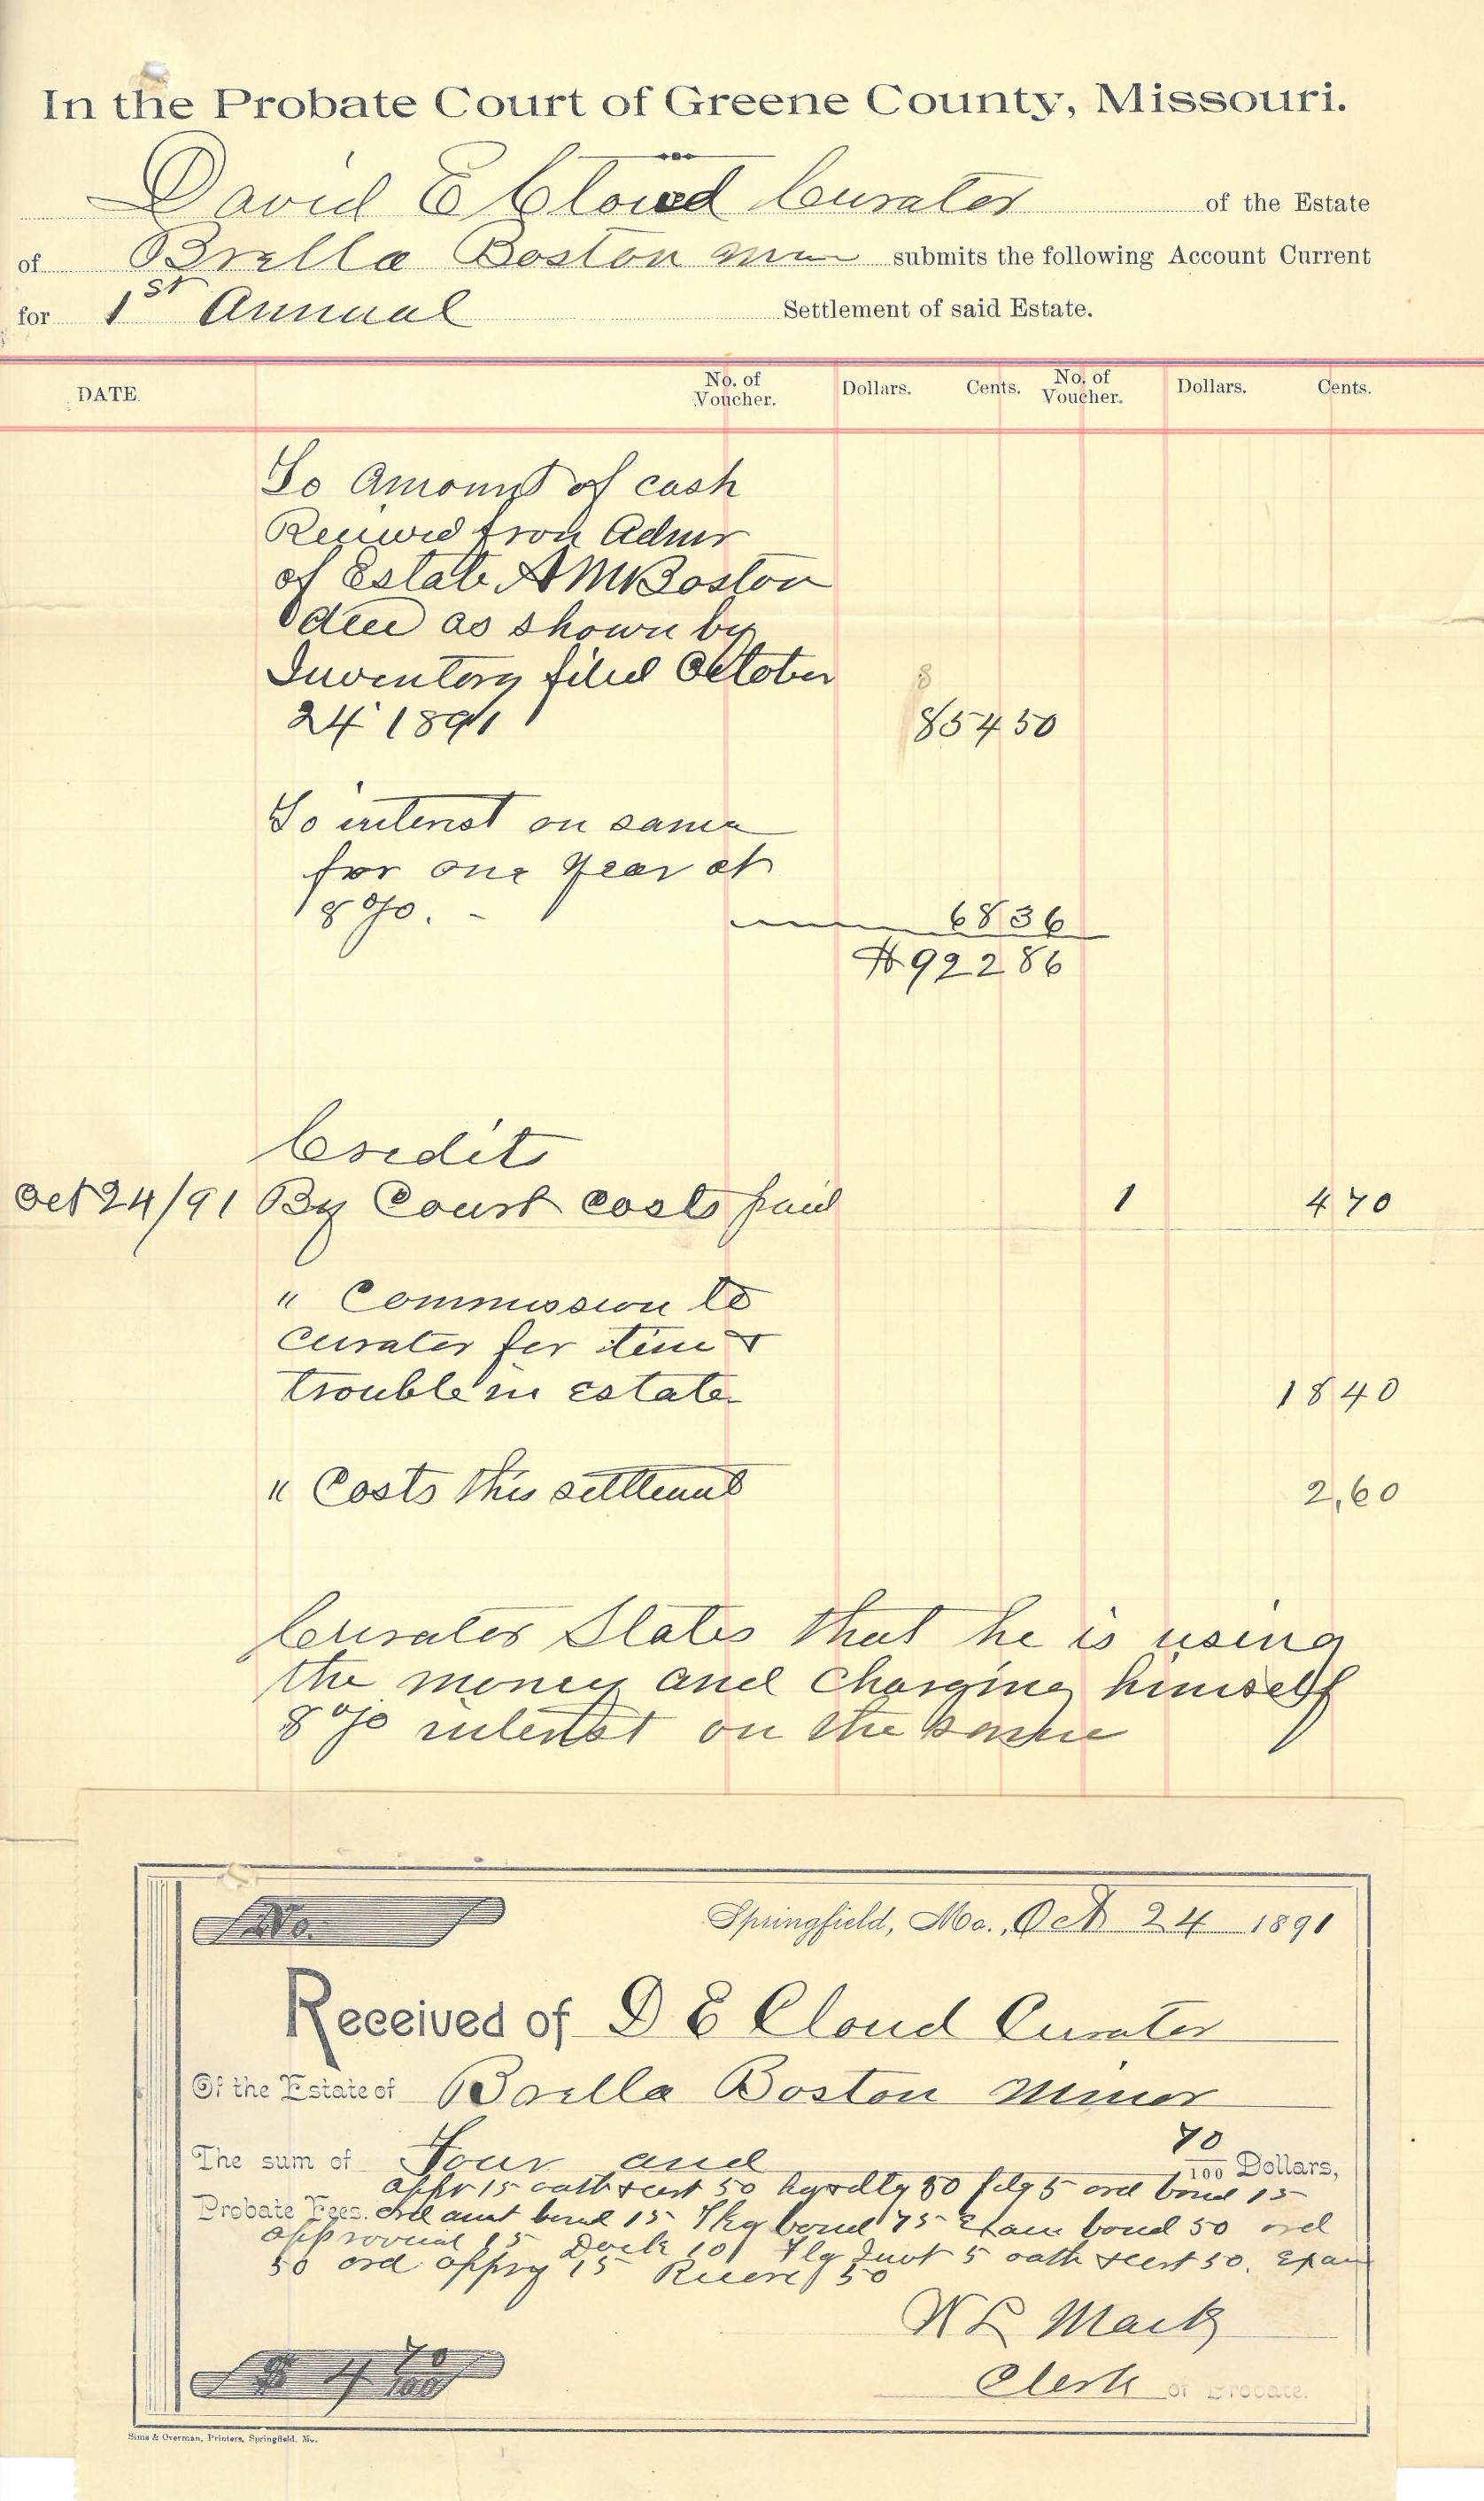 In the Probate Court of Greene County, Missouri.
David E Cloud Curator of the Estate
of Brella Boston submits the following Account Current
for 1st Annual Settlement of said Estate.
DATE. No. of Voucher. Dollars. Cents. No. of Voucher. Dollars. Cents.
To amount of cash
Recived from Admr
of Estate A M Boston
decd as shown by
Inventory filed October
8
24 1891 854 50
To interest on same
for one year at
8%. - 68 36
$922 86
Credits
Oct 24/91 By Court costs paid 1 4 70
" Commission to
curator for time &
trouble in estate 18 40
" Costs this settlement 2,60
Curator States that he is using
the money and charging himself
8% interest on the same
No. Springfield, Mo., Oct 24 1891
Received of D E Cloud Curator
Of the Estate of Brella Boston minor
The sum of Four and 70/100 Dollars,
appr 15 oath & cert 50 80 filg 5 ord bond 15
Probate Fees. ord bond 15 bond 75 Exam bond 50 ord
approval 15 Dock 10 Flg Invt 5 oath & cert 50. Exam
50 ord 15 50
W L Mack
Clerk of Probate.
$ 4 70/100
Sims & Overman, Printers, Springfield, Mo.